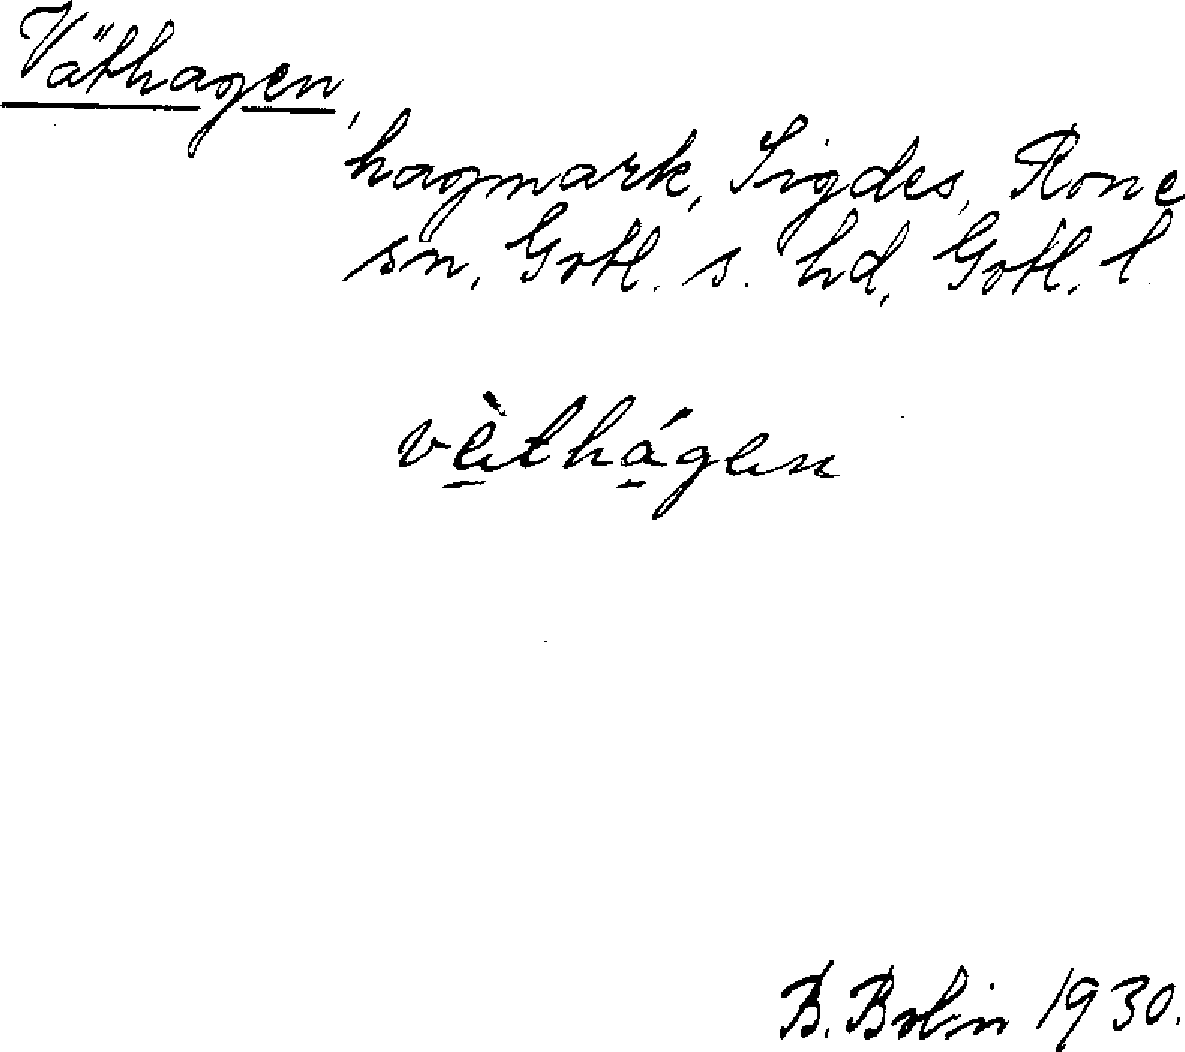 Väthagen,
hagmark, Sigdes, Rone
sn, Gotl. s. hd, Gotl. l.
vèthágen
B. Bolin 1930.